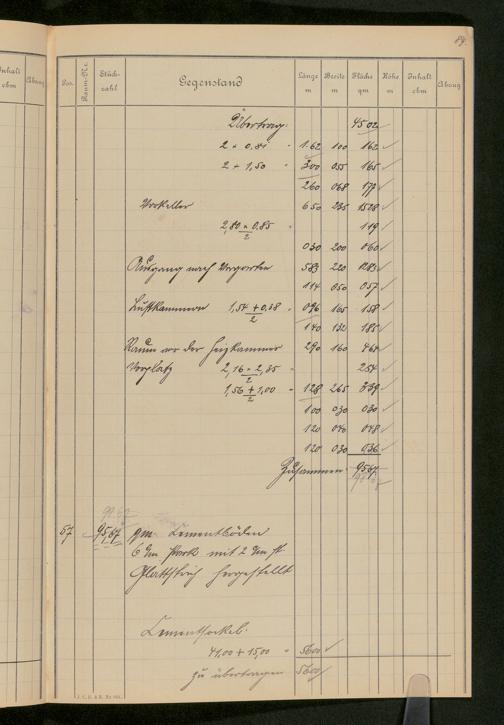 89.
Inhalt cbm Abzug
Pos. Raum-Nr. Stück-zahl Gegenstand Länge m Breite m Fläche qm Höhe m Inhalt cbm Abzug
Übertrag. 4502
2 × 0.81 " 1.62 100 162
2 × 1,50 " 300 055 165
260 068 177
Vorkeller 650 235 1528
2,80 × 0.85 / 2 " 119
030 200 060
Ausgang nach 583 220 1283
114 050 057
Luftkammern 1,54 + 0,38 / 2 " 096 165 158
140 132 185
Raum vor der Heizkammer 290 160 464
Vorplatz 2,16 × 2,35 / 2 " 254
1,56 + 1,00 / 2 " 128 265 339
100 030 030
120 040 048
120 030 036
Zusammen. 9567
57 95,67 qm Cementböden
6 cm stark mit 2 cm st.
Glattstrich hergestellt
Cementsockel.
41,00 + 15,00 " 5600
zu übertragen 5600